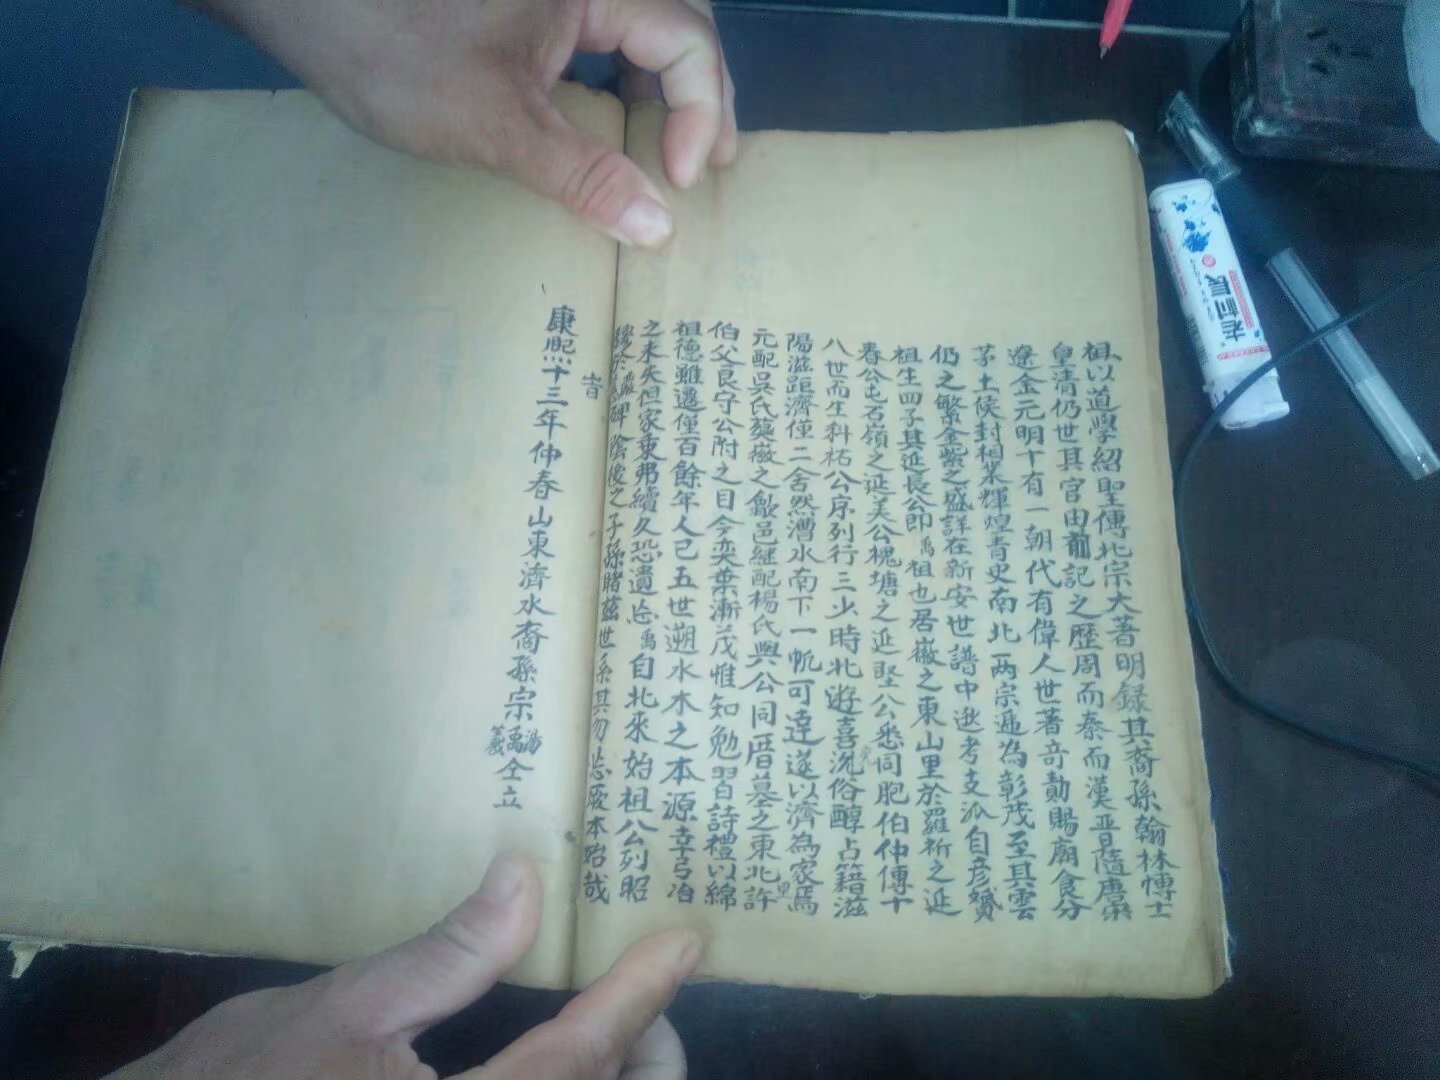 祖以道學紹聖傳北宗大著明錄其裔孫翰林博士
皇清仍世其官由前記之歷周而秦而漢晋隨唐宋
遼金元明十有一朝代有偉人世著竒勛賜廟食分
茅土侯封相業輝煌青史南北兩宗逓為彰茂至其雲
仍之繁金紫之盛詳在新安世譜中逖考支派自彦贇
祖生四子其延長公即禹祖也居徽之東山里於羅祈之延
春公屯石嶺之延美公槐塘之延堅公悉同胞伯仲傳十
八世而生科祏公序列行三少時北遊喜流俗醇占籍滋
陽滋距濟僅二舍然漕水南下一帆可達遂以濟為家焉
元配吳氏葵徽之歙邑継配楊氏與公同厝墓之東北許
伯父良守公附之目今奕葉漸茂惟知勉習詩禮以綿
祖德雖遷僅百餘年人已五世遡水木之本源幸弓冶
之未失但家乗弗續久恐遺忘禹自北來始祖公列昭
穆於碑陰後之子孫睹兹世系其勿忘厥本始哉
旹
康熙十三年仲春山東濟水裔孫宗湯禹羲仝立
老村長